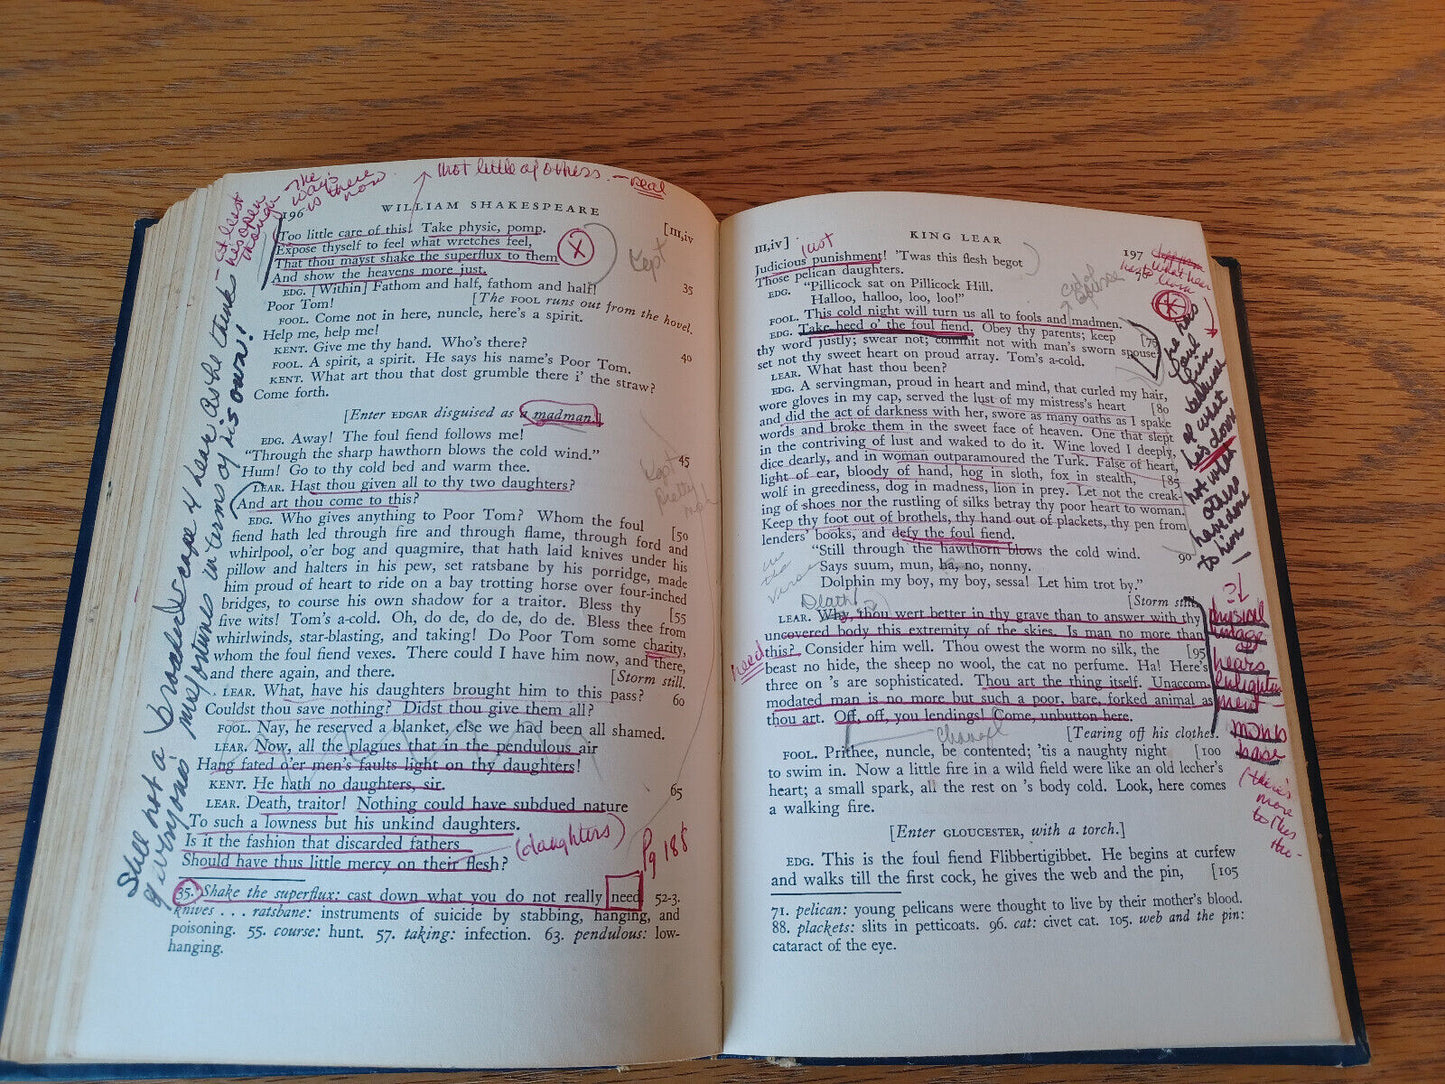 not little of others. — real
The way's is there now
- at least he's open though
196
WILLIAM SHAKESPEARE
[III,iv
Too little care of this! Take physic, pomp.
Expose thyself to feel what wretches feel,
That thou mayst shake the superflux to them
And show the heavens more just.
Kept
EDG. [Within] Fathom and half, fathom and half! 35
Poor Tom! [The FOOL runs out from the hovel.
FOOL. Come not in here, nuncle, here's a spirit.
Help me, help me!
KENT. Give me thy hand. Who's there?
FOOL. A spirit, a spirit. He says his name's Poor Tom. 40
KENT. What art thou that dost grumble there i' the straw?
Come forth.
[Enter EDGAR disguised as a madman.]
EDG. Away! The foul fiend follows me!
"Through the sharp hawthorn blows the cold wind." 45
Hum! Go to thy cold bed and warm thee.
LEAR. Hast thou given all to thy two daughters?
And art thou come to this?
Kept pretty
EDG. Who gives anything to Poor Tom? Whom the foul [50
fiend hath led through fire and through flame, through ford and
whirlpool, o'er bog and quagmire, that hath laid knives under his
pillow and halters in his pew, set ratsbane by his porridge, made
him proud of heart to ride on a bay trotting horse over four-inched
bridges, to course his own shadow for a traitor. Bless thy [55
five wits! Tom's a-cold. Oh, do de, do de, do de. Bless thee from
whirlwinds, star-blasting, and taking! Do Poor Tom some charity,
whom the foul fiend vexes. There could I have him now, and there,
and there again, and there. [Storm still.
LEAR. What, have his daughters brought him to this pass? 60
Couldst thou save nothing? Didst thou give them all?
FOOL. Nay, he reserved a blanket, else we had been all shamed.
LEAR. Now, all the plagues that in the pendulous air
Hang fated o'er men's faults light on thy daughters!
KENT. He hath no daughters, sir. 65
LEAR. Death, traitor! Nothing could have subdued nature
To such a lowness but his unkind daughters.
Is it the fashion that discarded fathers
Should have thus little mercy on their flesh?
(daughters)
Pg 188
35. Shake the superflux: cast down what you do not really need. 52-3.
knives . . . ratsbane: instruments of suicide by stabbing, hanging, and
poisoning. 55. course: hunt. 57. taking: infection. 63. pendulous: low-
hanging.
Still not a broader scope 4 hear as he thinks
of everyones misfortunes in terms of his own!
III,iv]
KING LEAR
197
just
Judicious punishment! 'Twas this flesh begot
Those pelican daughters.
EDG. "Pillicock sat on Pillicock Hill.
Halloo, halloo, loo, loo!"
FOOL. This cold night will turn us all to fools and madmen.
EDG. Take heed o' the foul fiend. Obey thy parents; keep [75
thy word justly; swear not; commit not with man's sworn spouse;
set not thy sweet heart on proud array. Tom's a-cold.
LEAR. What hast thou been?
EDG. A servingman, proud in heart and mind, that curled my hair,
wore gloves in my cap, served the lust of my mistress's heart [80
and did the act of darkness with her, swore as many oaths as I spake
words and broke them in the sweet face of heaven. One that slept
in the contriving of lust and waked to do it. Wine loved I deeply,
dice dearly, and in woman outparamoured the Turk. False of heart,
light of ear, bloody of hand, hog in sloth, fox in stealth, [85
wolf in greediness, dog in madness, lion in prey. Let not the creak-
ing of shoes nor the rustling of silks betray thy poor heart to woman.
Keep thy foot out of brothels, thy hand out of plackets, thy pen from
lenders' books, and defy the foul fiend.
"Still through the hawthorn blows the cold wind. 90
Says suum, mun, ha, no, nonny.
Dolphin my boy, my boy, sessa! Let him trot by."
[Storm still.
Death
LEAR. Why, thou wert better in thy grave than to answer with thy
uncovered body this extremity of the skies. Is man no more than
this? Consider him well. Thou owest the worm no silk, the [95
beast no hide, the sheep no wool, the cat no perfume. Ha! Here's
three on 's are sophisticated. Thou art the thing itself. Unaccom-
modated man is no more but such a poor, bare, forked animal as
thou art. Off, off, you lendings! Come, unbutton here.
need
Changed
[Tearing off his clothes.
FOOL. Prithee, nuncle, be contented; 'tis a naughty night [100
to swim in. Now a little fire in a wild field were like an old lecher's
heart; a small spark, all the rest on 's body cold. Look, here comes
a walking fire.
[Enter GLOUCESTER, with a torch.]
EDG. This is the foul fiend Flibbertigibbet. He begins at curfew
and walks till the first cock, he gives the web and the pin, [105
71. pelican: young pelicans were thought to live by their mother's blood.
88. plackets: slits in petticoats. 96. cat: civet cat. 105. web and the pin:
cataract of the eye.
he has
foul
because
of what
he's done
not what
others
have done
to him
physical
image
nears
enlighten
ment
(there's
more
to this